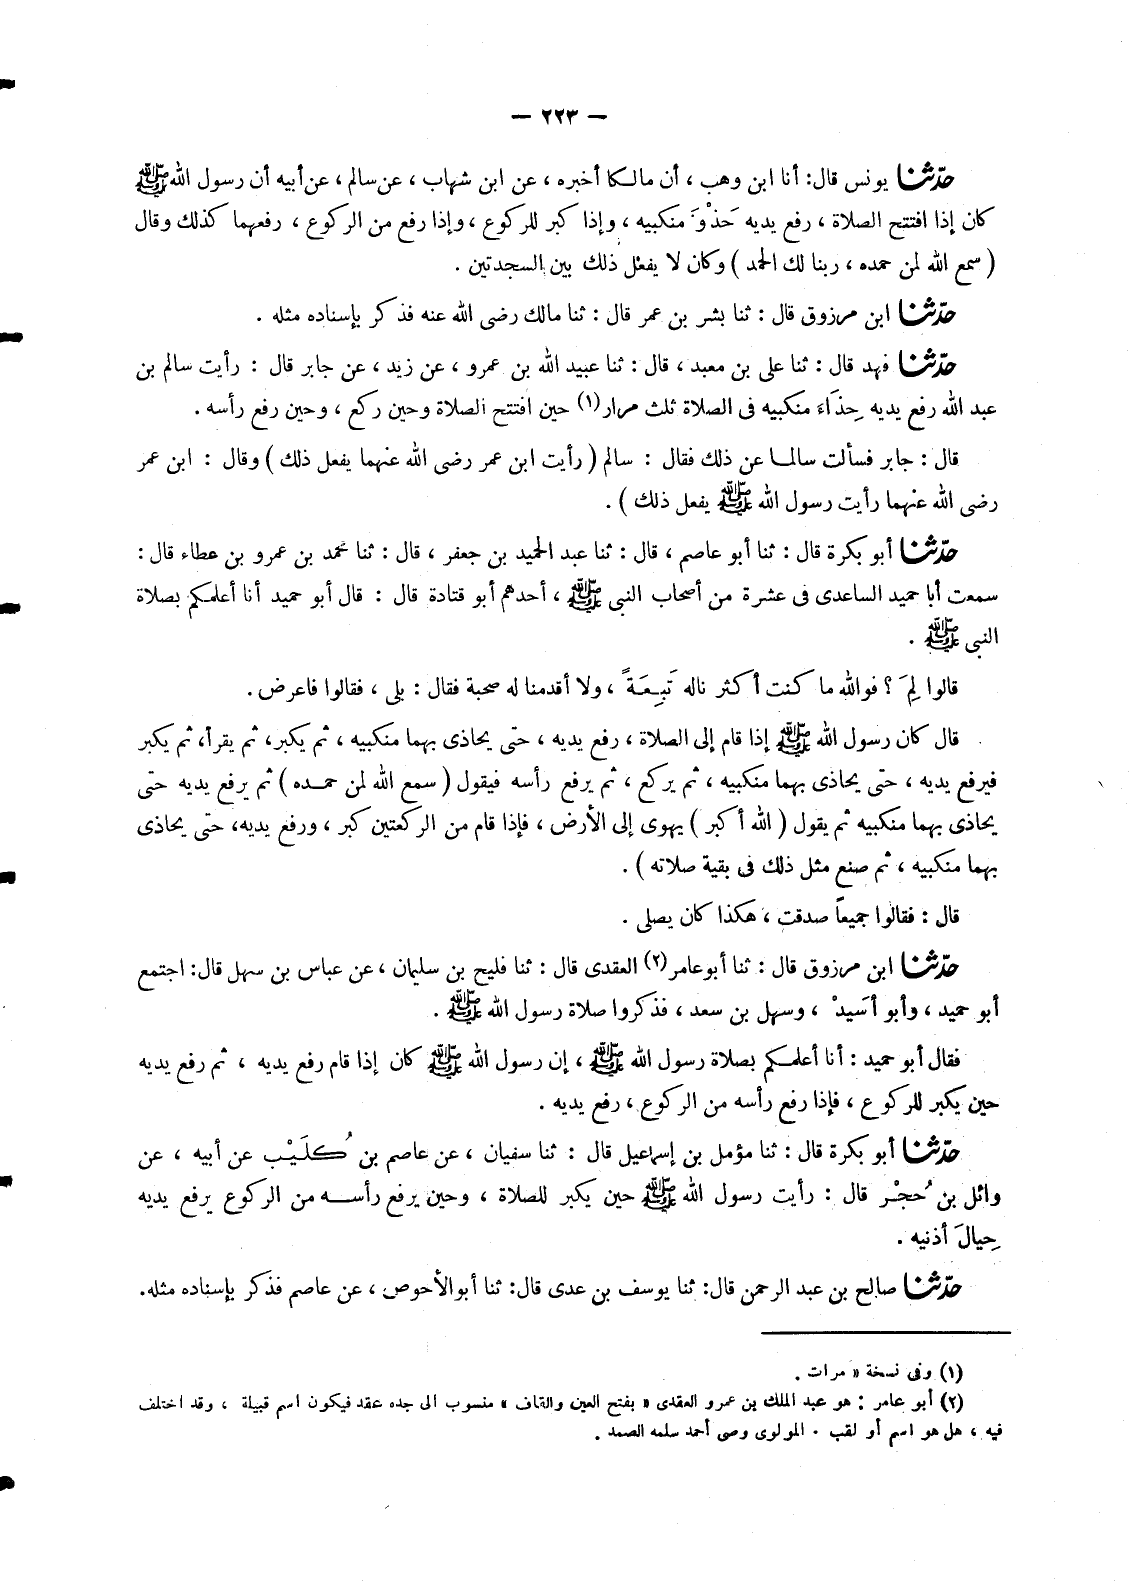 — ٢٢٣ —
حدّثنا يونس قال: أنا ابن وهب ، أن مالكا أخبره ، عن ابن شهاب ، عن سالم ، عن أبيه أن رسول الله ﷺ
كان إذا افتتح الصلاة ، رفع يديه حَذْوَ منكبيه ، وإذا كبر للركوع ، وإذا رفع من الركوع ، رفعهما كذلك وقال
( سمع الله لمن حمده ، ربنا لك الحمد ) وكان لا يفعل ذلك بين السجدتين .
حدّثنا ابن مرزوق قال : ثنا بشر بن عمر قال : ثنا مالك رضى الله عنه فذكر بإسناده مثله .
حدّثنا فهد قال : ثنا على بن معبد ، قال : ثنا عبيد الله بن عمرو ، عن زيد ، عن جابر قال : رأيت سالم بن
عبد الله رفع يديه حِذَاءَ منكبيه فى الصلاة ثلث مرار(١) حين افتتح الصلاة وحين ركع ، وحين رفع رأسه .
قال : جابر فسألت سالما عن ذلك فقال : سالم ( رأيت ابن عمر رضى الله عنهما يفعل ذلك ) وقال : ابن عمر
رضى الله عنهما رأيت رسول الله ﷺ يفعل ذلك ) .
حدّثنا أبو بكرة قال : ثنا أبو عاصم ، قال : ثنا عبد الحميد بن جعفر ، قال : ثنا محمد بن عمرو بن عطاء قال :
سمعت أبا حميد الساعدى فى عشرة من أصحاب النبى ﷺ ، أحدهم أبو قتادة قال : قال أبو حميد أنا أعلمكم بصلاة
النبى ﷺ .
قالوا لِمَ ؟ فوالله ما كنت أكثر ناله تَبِعَةً ، ولا أقدمنا له صحبة فقال : بلى ، فقالوا فاعرض .
قال كان رسول الله ﷺ إذا قام إلى الصلاة ، رفع يديه ، حتى يحاذى بهما منكبيه ، ثم يكبر، ثم يقرأ، ثم يكبر
فيرفع يديه ، حتى يحاذى بهما منكبيه ، ثم يركع ، ثم يرفع رأسه فيقول ( سمع الله لمن حمده ) ثم يرفع يديه حتى
يحاذى بهما منكبيه ثم يقول ( الله أكبر ) يهوى إلى الأرض ، فإذا قام من الركعتين كبر ، ورفع يديه، حتى يحاذى
بهما منكبيه ، ثم صنع مثل ذلك فى بقية صلاته ) .
قال : فقالوا جميعاً صدقت ، هكذا كان يصلى .
حدّثنا ابن مرزوق قال : ثنا أبو عامر(٢) العقدى قال : ثنا فليح بن سليمان ، عن عباس بن سهل قال: اجتمع
أبو حميد ، وأبو أسَيدْ ، وسهل بن سعد ، فذكروا صلاة رسول الله ﷺ .
فقال أبو حميد : أنا أعلمكم بصلاة رسول الله ﷺ ، إن رسول الله ﷺ كان إذا قام رفع يديه ، ثم رفع يديه
حين يكبر للركوع ، فإذا رفع رأسه من الركوع ، رفع يديه .
حدّثنا أبو بكرة قال : ثنا مؤمل بن إسماعيل قال : ثنا سفيان ، عن عاصم بن كُلَيْب عن أبيه ، عن
وائل بن حُجْر قال : رأيت رسول الله ﷺ حين يكبر للصلاة ، وحين يرفع رأسه من الركوع يرفع يديه
حِيالَ أذنيه .
حدّثنا صالح بن عبد الرحمن قال: ثنا يوسف بن عدى قال: ثنا أبو الأحوص ، عن عاصم فذكر بإسناده مثله.
(١) وفى نسخة « مرات .
(٢) أبو عامر : هو عبد الملك بن عمرو العقدى « بفتح العين والقاف » منسوب الى جده عقد فيكون اسم قبيلة ، وقد اختلف
فيه ، هل هو اسم أو لقب . المولوى وصى أحمد سلمه الصمد .